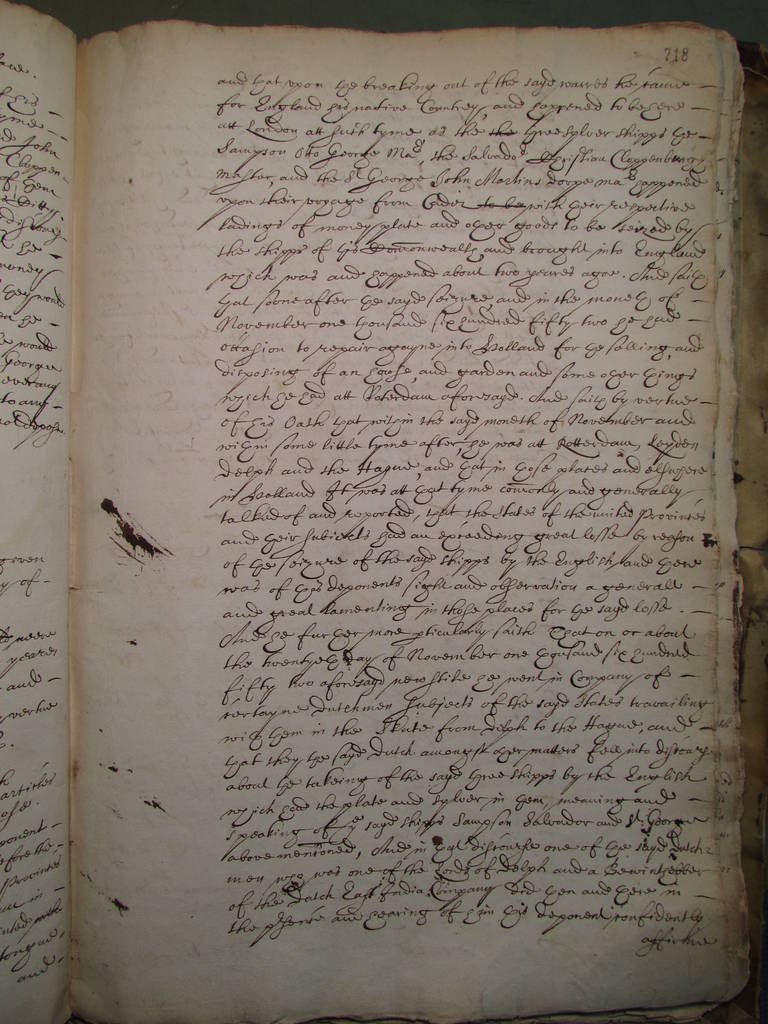 718
and that upon the breaking out of the sayd warres he came
for England his native Countrey, and happened to be here
att London att such tyme as the the three sylver shipps the
Sampson Otto George Mar, the Salvador Christian Cloppenburg
Master, and the St George John Martins Dorpe mar happened
upon their voyage from Cadez to be with their respective
ladings of money plate and other goods to be seized by
the shipps of this Commonwealth and brought into England
which was and happened about two yeares agoe. And saith
that soone after the sayd seizure, and in the moneth of
November one thousand six hundred fifty two he had
occasion to repaire agayne into Holland for the selling, and
disposing of an house, and garden and some other things
which he had att Roterdam aforesayd. And saith by vertue
of his Oath that within the sayd moneth of November and
within some little tyme after, he was att Rotterdam, Leyden
Delph and the Hague, and that in those places and elswhere
in Holland It was att that tyme comonly and generally
talked of and reported, that the States of the united Provinces
and their subiects had an exceeding great losse by reason
of the seizure of the sayd shipps by the English and there
was of this deponents sight and observation a generall
and great lamenting in those places for the sayd losse.
And he further more pticularly saith That on or about
the twentyeth day of November one thousand six hundred
fifty two aforesayd new stile he went in Company of
certayne dutchmen subiects of the sayd States travailing
with them in the Skute from Delph to the Hague, and
that they the sayd dutch amongst other matters fell into discourse
about the takeing of the sayd three shipps by the English
which had the plate and sylver in them, meaning and
speaking of ye sayd shipps Sampson Salvador and St George
above mentioned, And in that discourse one of the sayd Dutch-
men who was one of the Lords of Delph and a Bewinthebber
of the Dutch East India Company did then and there in
the psence and hearing of him this deponent confidently
affirme